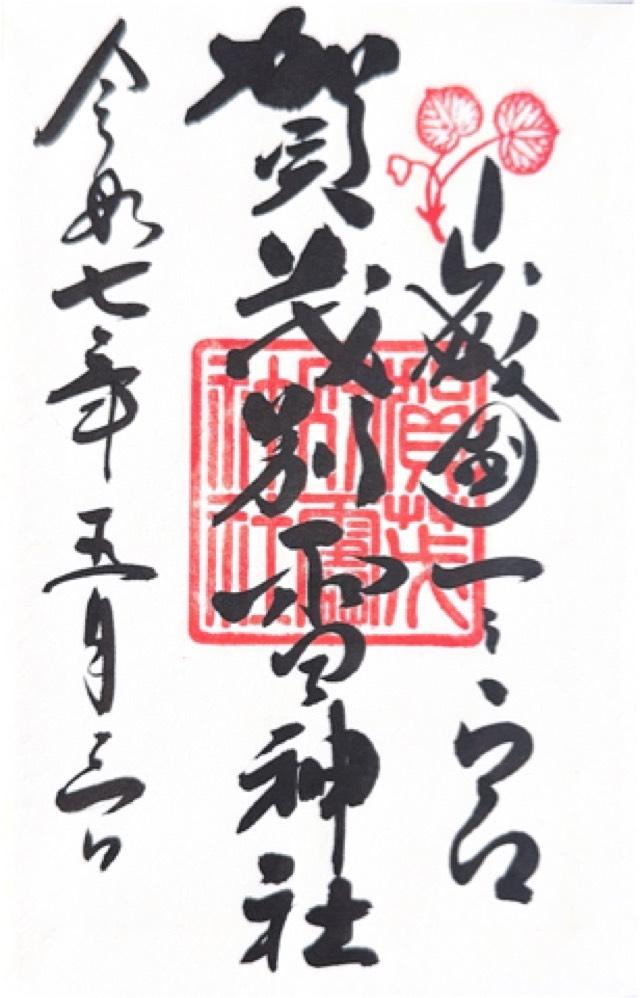 山城國一之宮
賀茂別雷神社
令和七年五月三日
賀茂
別雷
神社